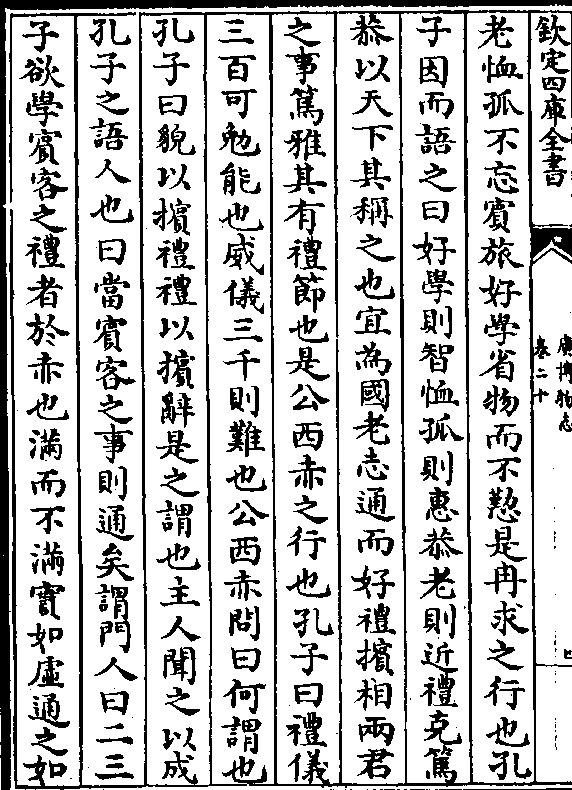 欽定四庫全書
廣博物志
卷二十
老恤孤不忘賓旅好學省物而不懃是冉求之行也孔
子因而語之曰好學則智恤孤則惠恭老則近禮克篤
恭以天下其稱之也宜為國老志通而好禮擯相兩君
之事篤雅其有禮節也是公西赤之行也孔子曰禮儀
三百可勉能也威儀三千則難也公西赤問曰何謂也
孔子曰貌以擯禮禮以擯辭是之謂也主人聞之以成
孔子之語人也曰當賓客之事則通矣謂門人曰二三
子欲學賓客之禮者於赤也滿而不滿實如虛通之如